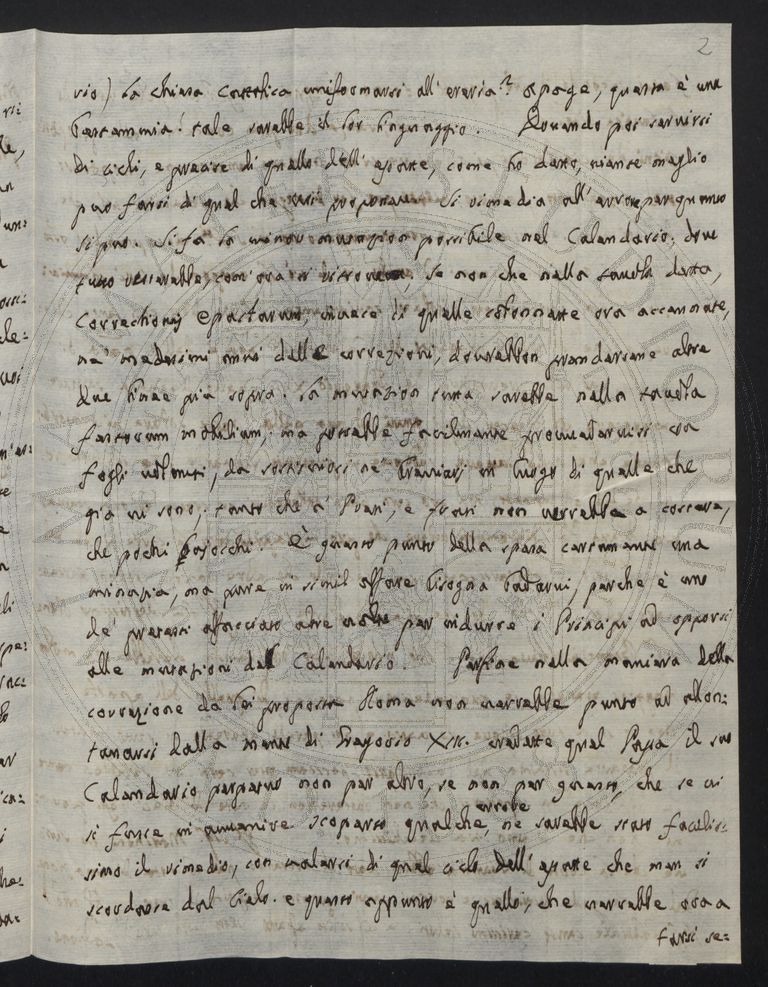 2
rio) la chiesa Cattolica uniformarsi all'eresia? apage, questa è una
bestemmia! tale sarebbe il lor linguaggio. Quando poi servirsi
di cicli, e precise di quello dell'epatte, come ho detto, niente meglio
può farsi di quel che proponeva. Si rimedia all'errore per quanto
si può. Si fa la minor mutazion possibile nel Calendario, dove
tutto resterebbe, com'ora si ritrova, se non che nella tavola detta,
Correctionis epactarum, invece di quelle colonnette ora accennate,
ne' medesimi anni delle correzioni, dovrebbon prendersene altre
due linee più sopra. la mutazion tutta sarebbe nella tavola
festorum mobilium; ma potrebbe facilmente provvedervisi con
fogli volanti, da sostituirsi ne' breviarj in luogo di quelle che
già vi sono; tanto che a' Preti, e frati non verrebbe a costare,
che pochi bajocchi. È questo punto della spesa certamente una
minuzia, ma pure in simil affare bisogna badarvi, perchè è uno
de' pretesti affacciato altre volte per ridurre i Principi ad opporsi
alle mutazioni del Calendario. Perfine nella maniera della
correzione da lei proposta Roma non verrebbe punto ad allon:
tanarsi dalla mente di Gregorio XIII. credette quel Papa il suo
Calendario perpetuo non per altro, se non per questo, che se vi
si fosse in avvenire scoperto qualche errore, ne sarebbe stato facilis:
simo il rimedio, con valersi di quel ciclo dell'epatte che men si
scordasse dal Cielo. e questo appunto è quello, che verrebbe ora a
farsi se: